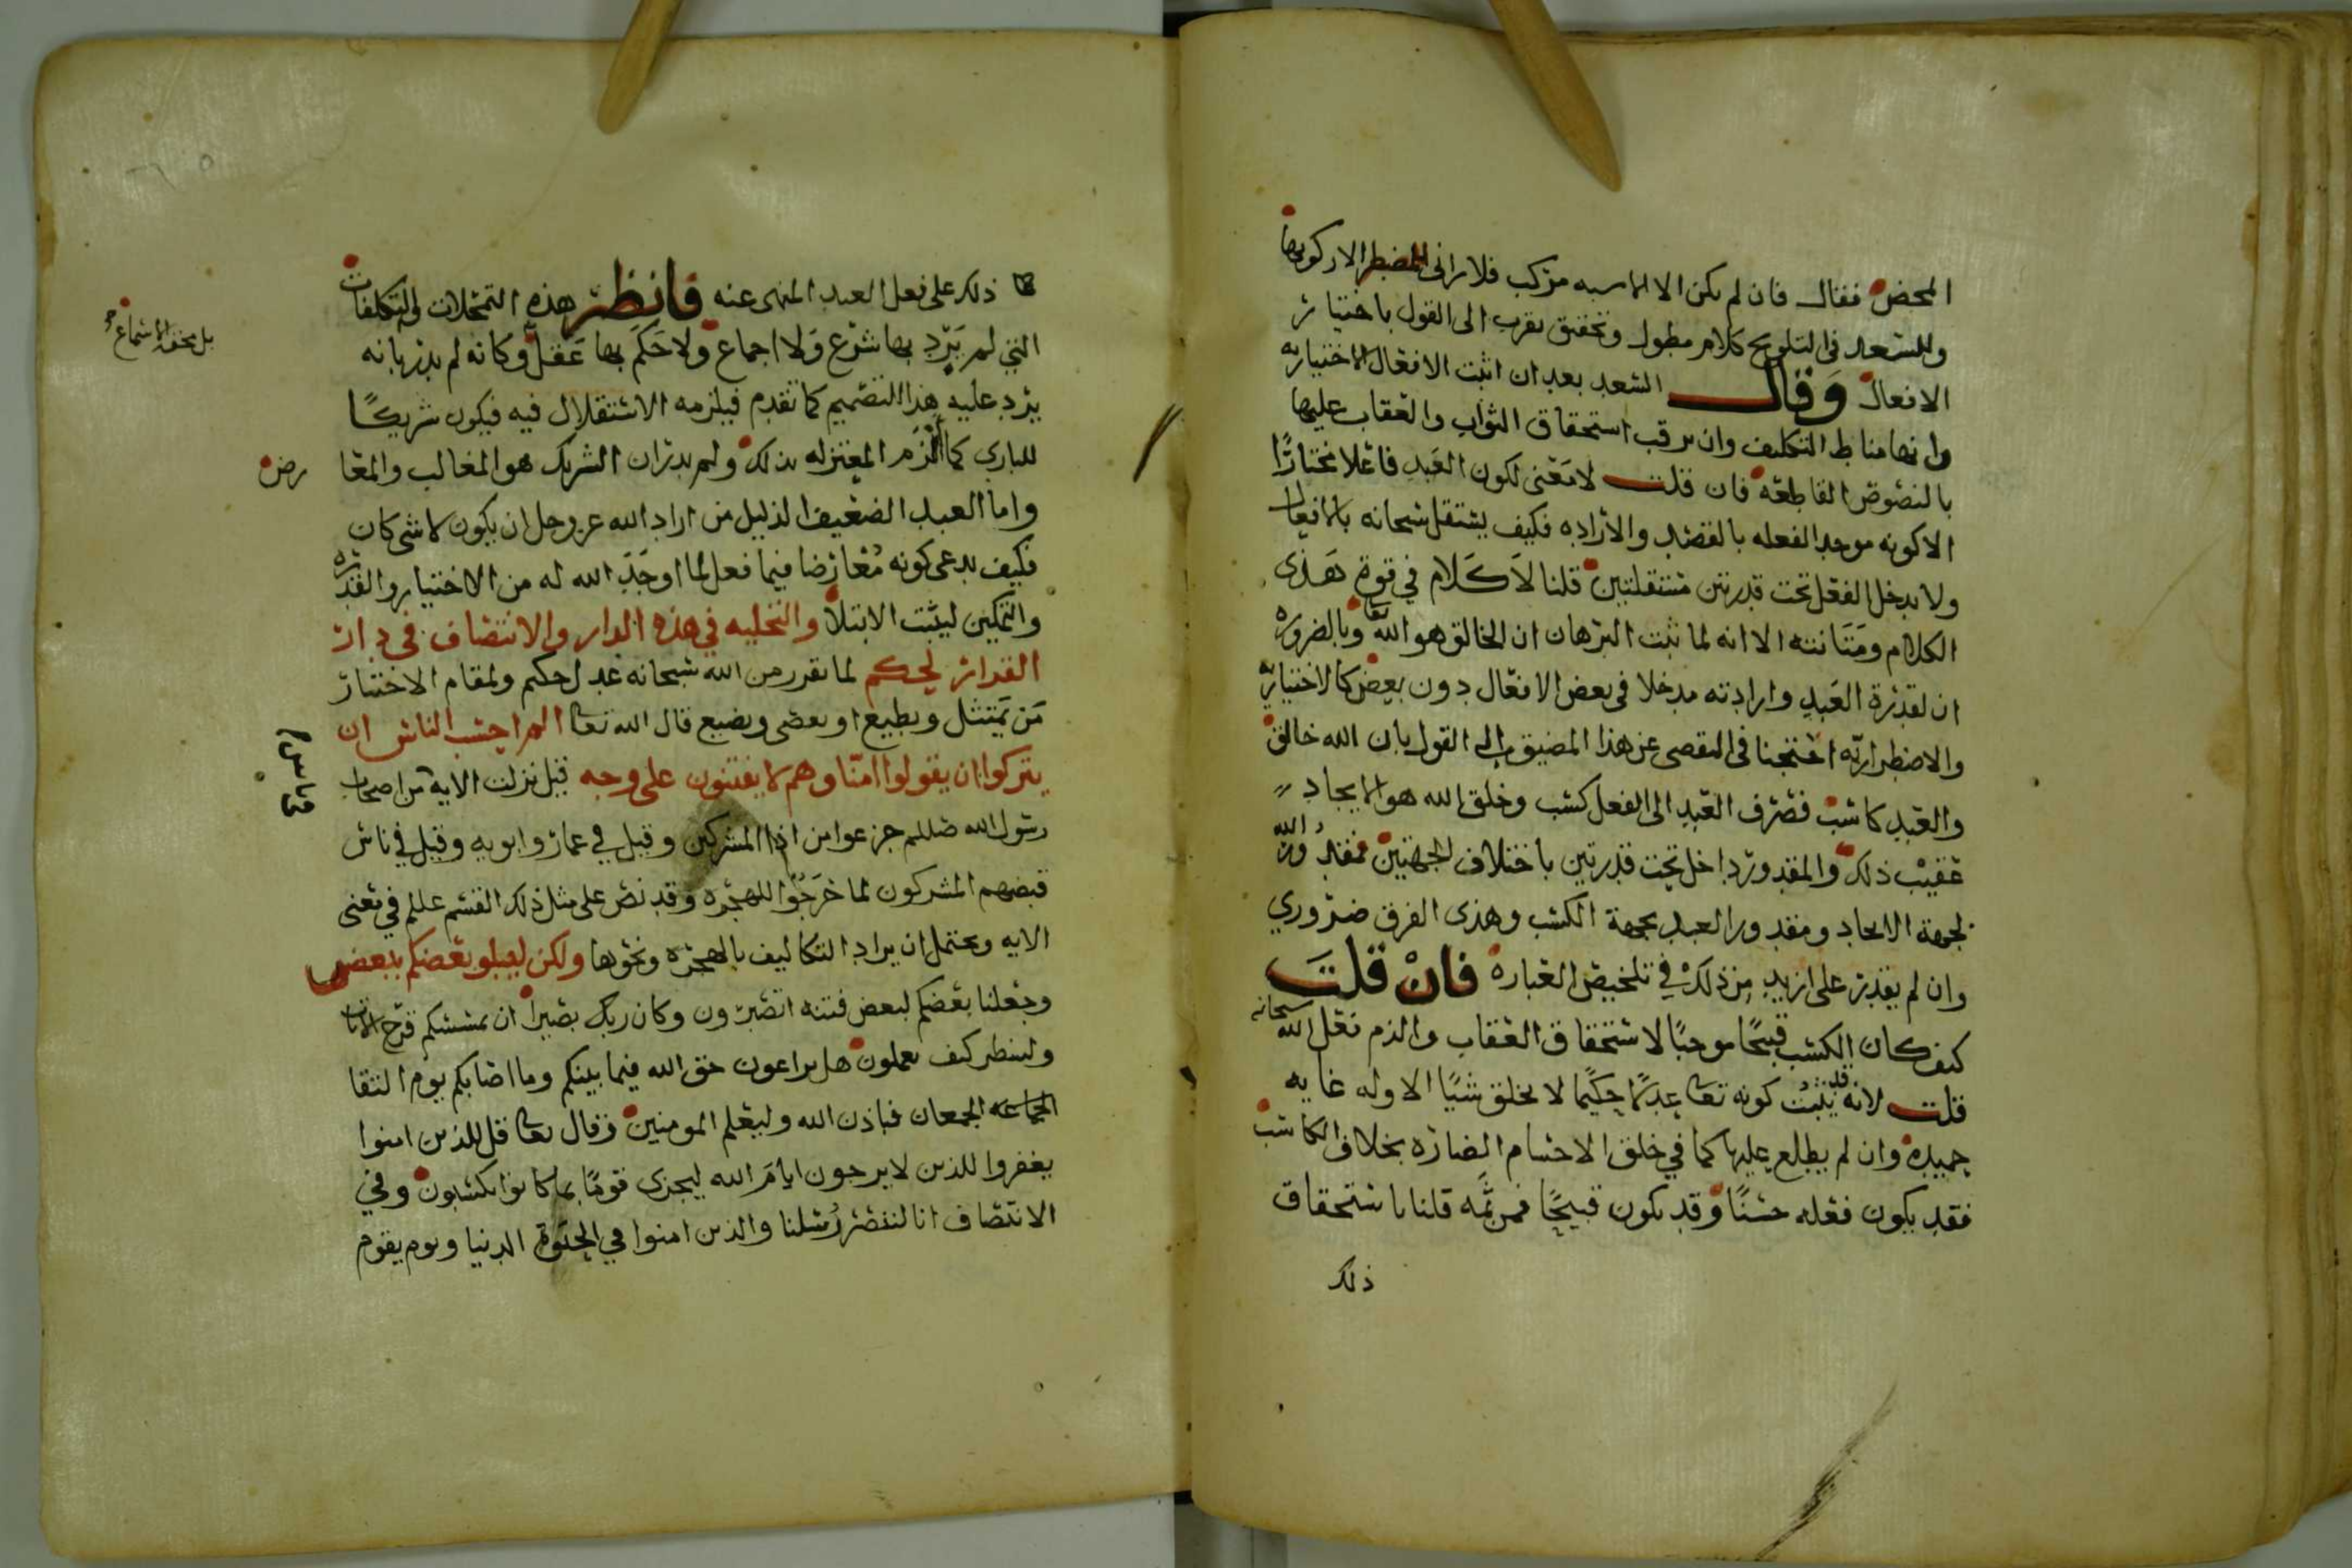 المحض فقال فان لم يكن الا الاسنه مركب فلا راى للمضطر الا ركوبها
وللسعد في التلويح كلام مطول وتحقيق يقرب الى القول باختيار
الافعال وقال السعد بعد ان اثبت الافعال الاختياريه
وانها مناط التكليف وان ترقب استحقاق الثواب والعقاب عليها
بالنصوص القاطعه فان قلت لا معنى لكون العبد فاعلا مختارًا
الا كونه موجدا لفعله بالقصد والارادة فكيف يستقل سبحانه بالافعال
ولا يدخل الفعل تحت قدرتين مستقلتين قلنا لا كلام في قوة هذى
الكلام ومتانته الا انه لما ثبت البرهان ان الخالق هو الله وبالضرورة
ان لقدرة العبد وارادته مدخلا في بعض الافعال دون بعض كالاختيارية
والاضطرارية احتجنا في التقصى عن هذا المضيق الى القول بان الله خالق
والعبد كاسب فصرف العبد الى الفعل كسب وخلق الله هو الايجاد
عقيب ذلك والمقدور داخل تحت قدرتين باختلاف الجهتين فمقدور الله
لجهة الايجاد ومقدور العبد بجهة الكسب وهذى الفرق ضروري
وان لم يقدر على ازيد من ذلك في تلخيص العبارة فان قلت
كيف كان الكسب قبيحًا موجبًا لاستحقاق العقاب والذم فعل الله سبحانه
قلت لانه قد يثبت كونه تعا عدلا حكيما لا يخلق شيًا الا وله غايه
حميدة وان لم يطلع عليها كما في خلق الاجسام الضارة بخلاف الكاسب
فقد يكون فعله حسنًا وقد يكون قبيحًا فمن ثمه قلنا باستحقاق
ذلك
ذلك على فعل العبد المنهى عنه فانظر هذه التمحلات والتكلفات
التي لم يرد بها شرع ولا اجماع ولا حكم بها عقل وكانه لم يدر بانه
يرد عليه هذا التصميم كما تقدم فيلزمه الاستقلال فيه فيكون شريكًا
للباري كما الزم المعتزله بذلك ولم يدر ان الشريك هو المغالب والمعا
رض
واما العبد الضعيف الذليل من اراد الله عز وجل ان يكون لا شى كان
فكيف يدعى كونه مُعارضا فيما فعل لما اوجَدَ الله له من الاختيار والقدره
والتمكين ليثبت الابتلا والتخليه في هذه الدار والانتصاف في دار
القرار لحكم لما تقرر من الله سبحانه عدل حكم ولمقام الاختبار
مَن يَمتثل ويطيع او يعصى ويضيع قال الله تعا الم احسب الناس ان
يتركوا ان يقولوا امنا وهم لا يفتنون على وجه قيل نزلت الايه من اصحاب
رسول الله صللم جزعوا من اذا المشركين وقيل في عمار وابويه وقيل في ناس
قبضهم المشركون لما خرجوا للهجرة وقد نص على مثل ذلك القسم عللم في معنى
الايه ويحتمل ان يراد التكاليف بالهجرة ونحوها ولكن ليبلو بعضكم ببعض
وجعلنا بعضكم لبعض فتنه اتصبرون وكان ربك بصيرا ان يمسسكم قرح الايات
ولينظر كيف تعملون هل يراعون حق الله فيما بينكم وما اصابكم يوم التقا
الجمعان فباذن الله وليعلم المومنين وقال تعا قل للذين امنوا
يغفروا للذين لا يرجون ايامَ الله ليجزى قومًا بما كانوا يكسبون وفي
الانتصاف انا لننصر رُسلنا والذين امنوا في الحيوة الدنيا ويوم يقوم